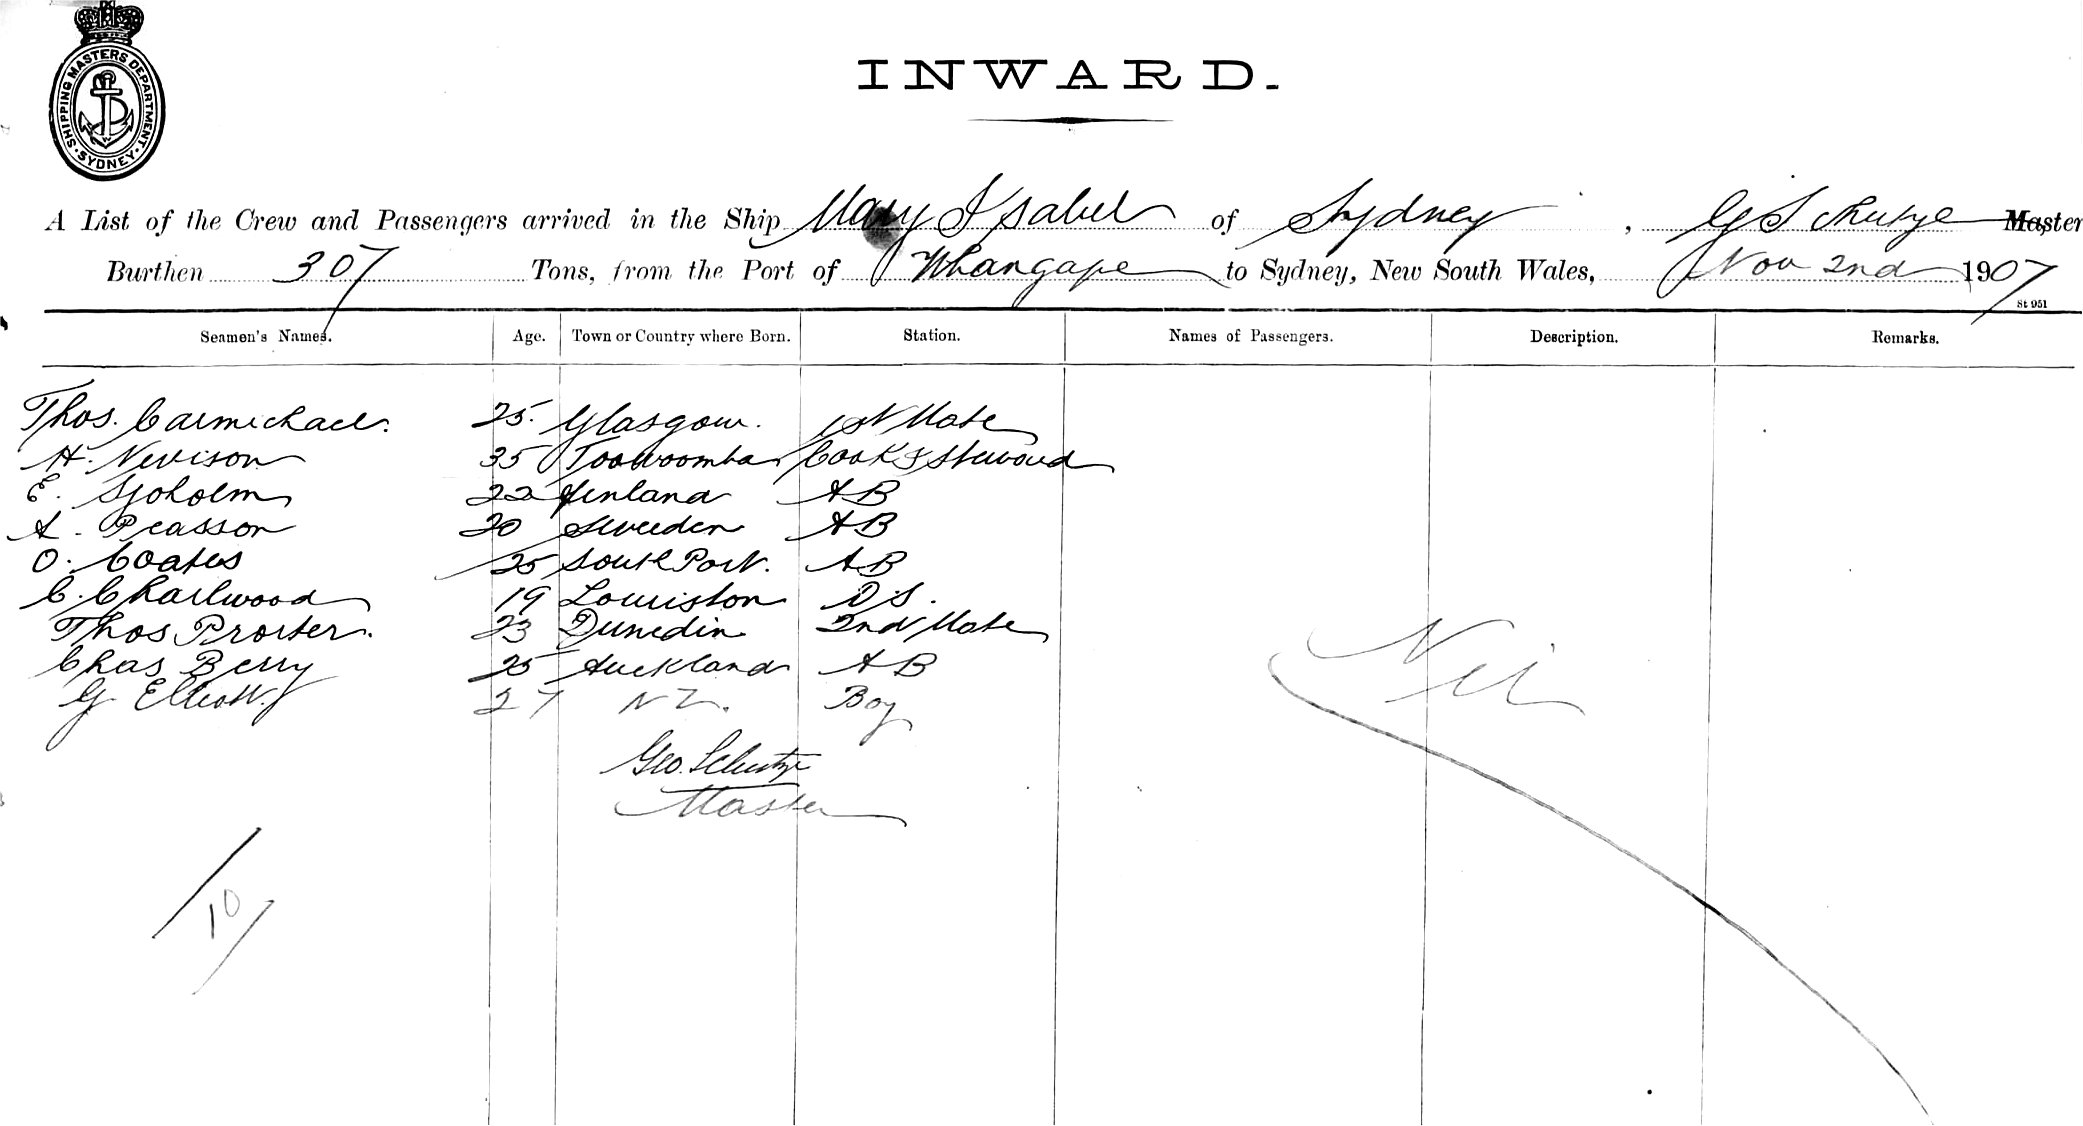 SHIPPING MASTERS DEPARTMENT. SYDNEY.
INWARD.
A List of the Crew and Passengers arrived in the Ship Mary Isabel of Sydney, G Schutze Master
Burthen 307 Tons, from the Port of Whangape to Sydney, New South Wales, Nov 2nd 1907
St 951
Seamen's Names. Age. Town or Country where Born. Station. Names of Passengers. Description. Remarks.
Thos. Carmichael. 25. Glasgow. 1st Mate
H. Nevison 35 Toowoomba Cook & Steward
E. Sjoholm 22 Finland AB
A. Peasson 20 Sweeden AB
O. Coates 25 South Port. AB
C. Charlwood 19 Louriston O.S.
Thos Prorter. 23 Dunedin 2nd Mate
Chas Berry 25 Auckland AB
G Elliott. 27 NZ. Boy
Nil
Geo. Schutze
Master
10